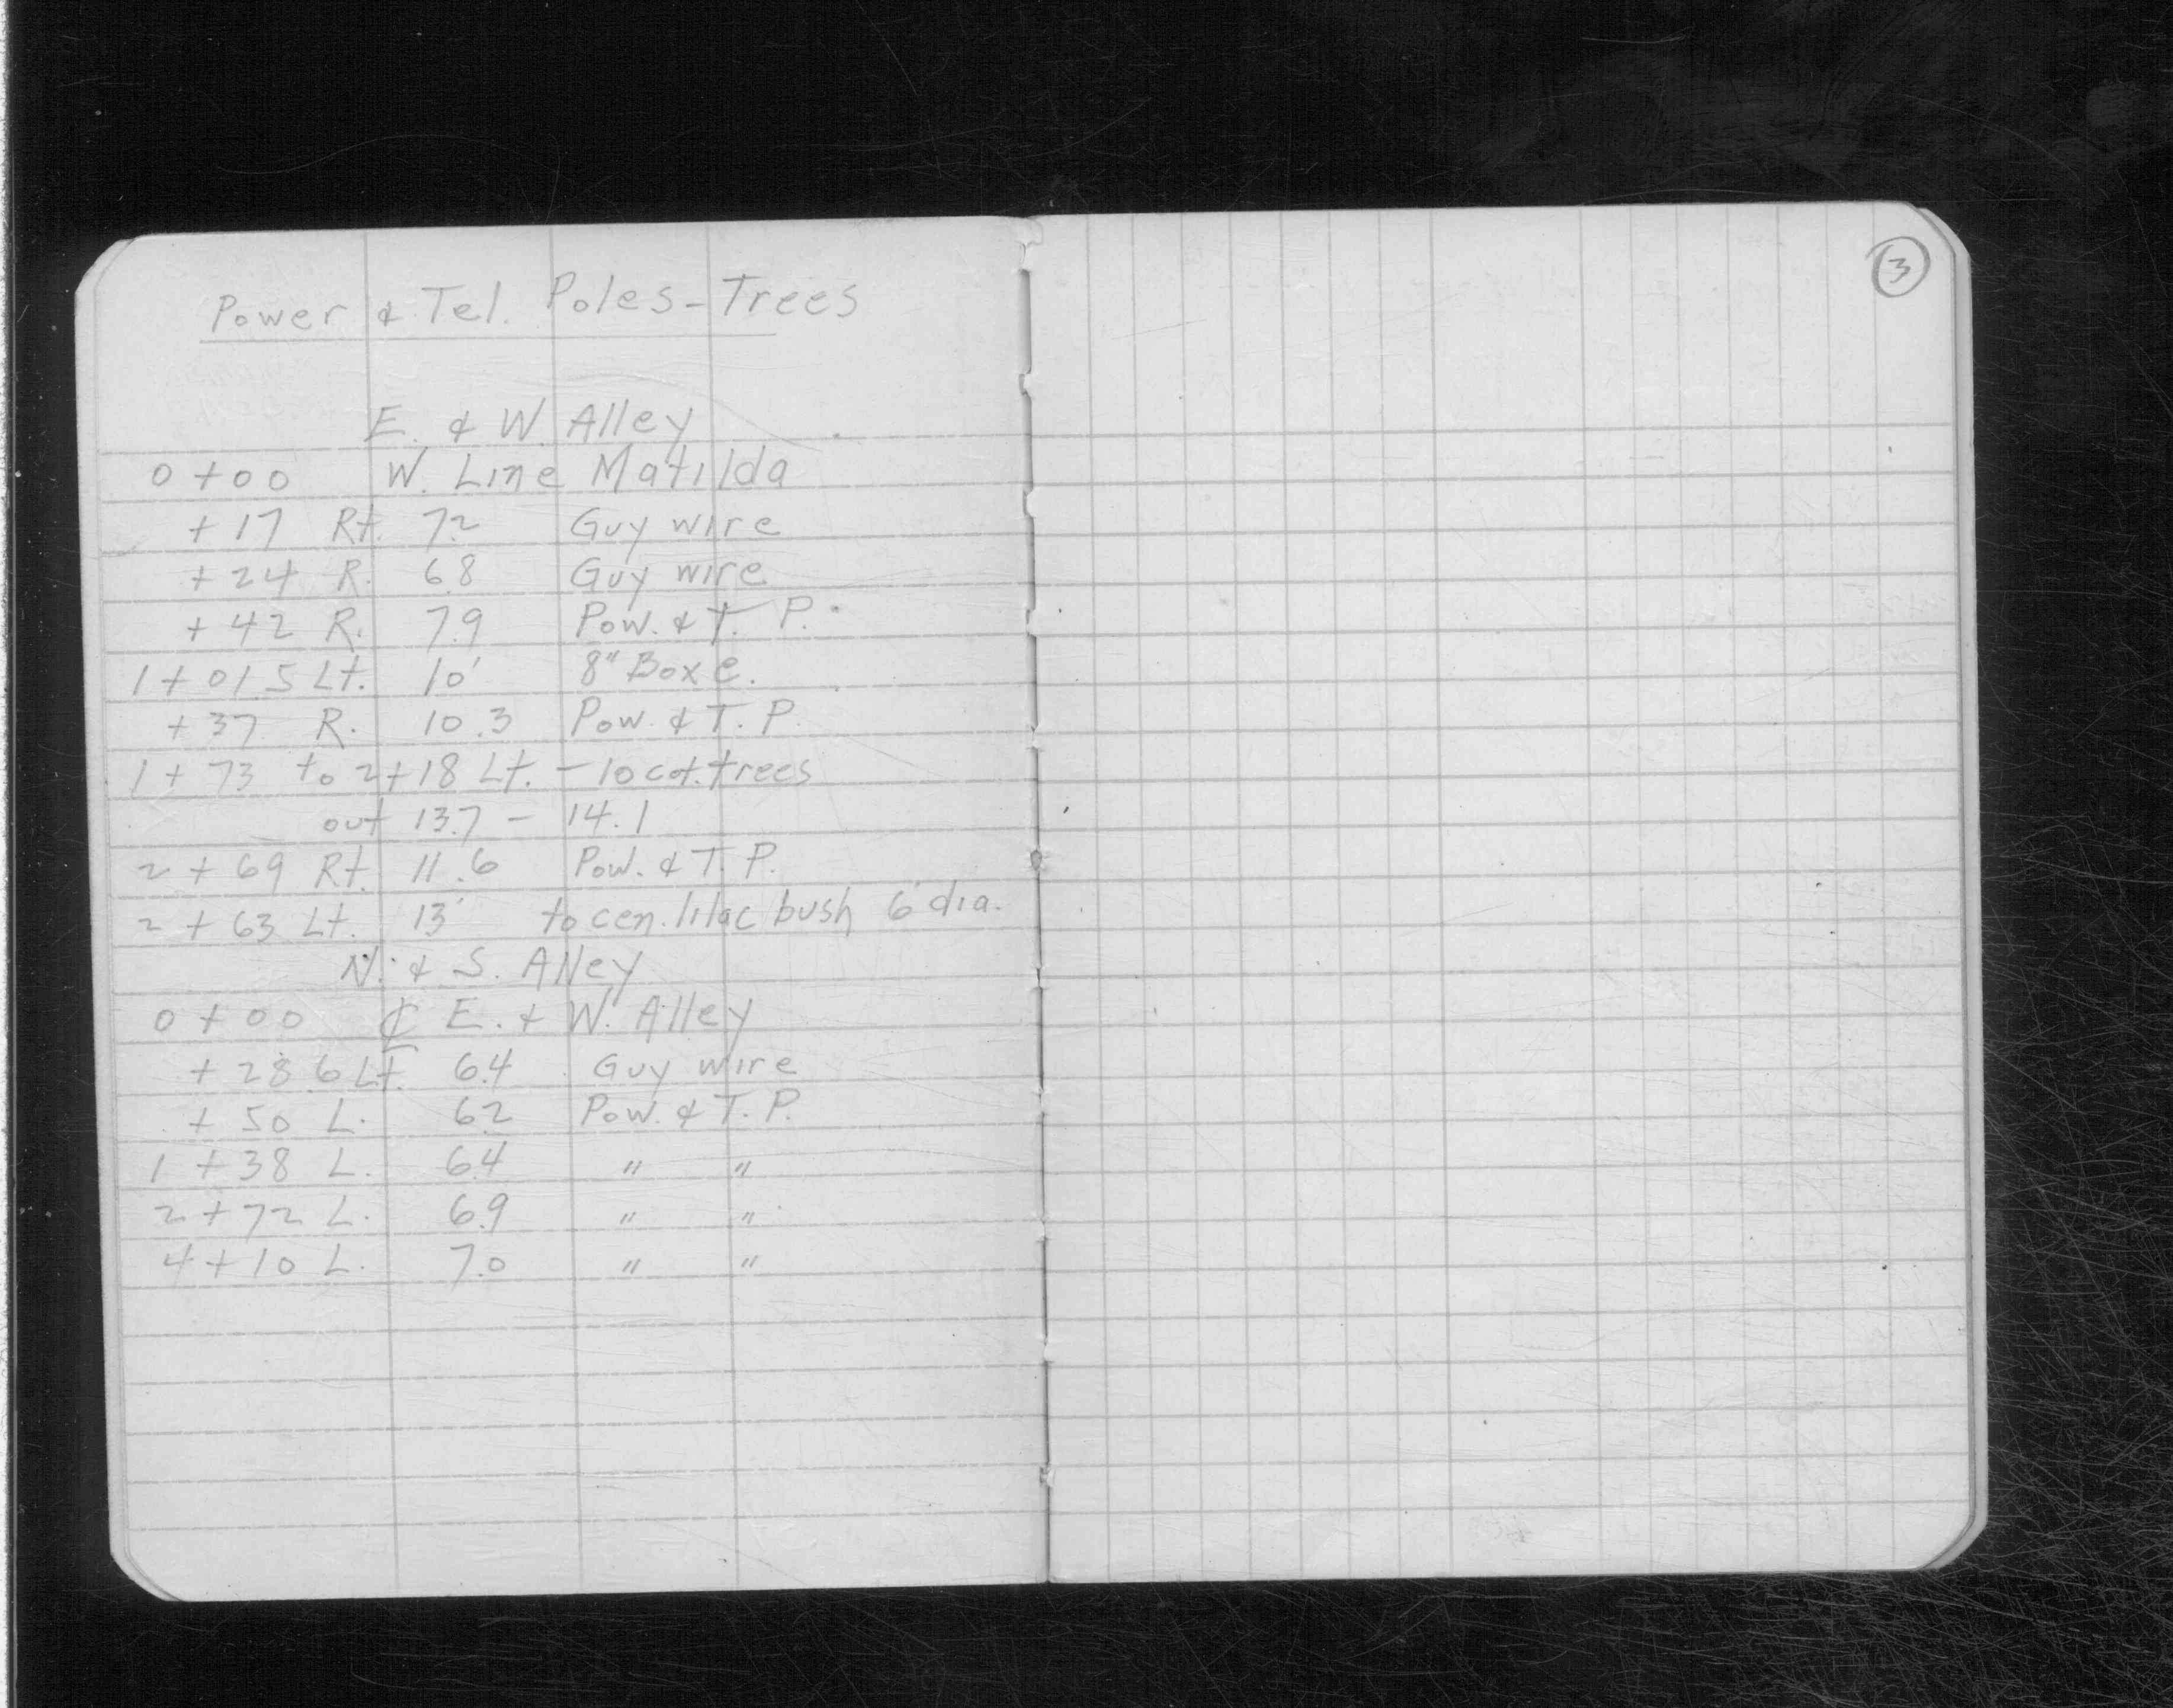 3
Power & Tel. Poles - Trees
E. & W. Alley
0+00 W. Line Matilda
+17 Rt. 7.2 Guy wire
+24 R. 6.8 Guy wire
+42 R. 7.9 Pow. & T. P.
1+01.5 Lt. 10' 8" Box e.
+37 R. 10.3 Pow. & T. P.
1+73 to 2+18 Lt. - 10 cot. trees
out 13.7 - 14.1
2+69 Rt. 11.6 Pow. & T. P.
2+63 Lt. 13' to cen. lilac bush 6' dia.
N. & S. Alley
0+00 ₵ E. + W. Alley
+28.6 Lt. 6.4 Guy wire
+50 L. 6.2 Pow. & T. P.
1+38 L. 6.4 " "
2+72 L. 6.9 " "
4+10 L. 7.0 " "